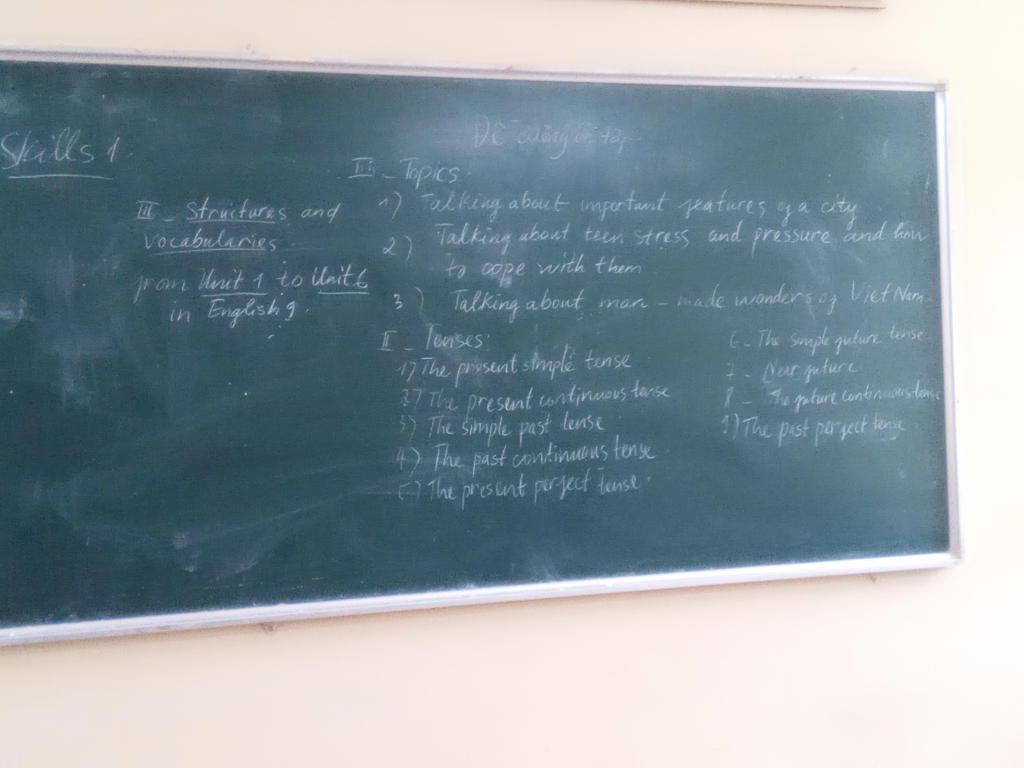 Skills 1.
Đề cương ôn tập
III - Topics:
1) Talking about important features of a city
2) Talking about teen stress and pressure and how
to cope with them
3) Talking about man-made wonders of Viet Nam.
II - Tenses:
1) The present simple tense
2) The present continuous tense
3) The simple past tense
4) The past continuous tense
5) The present perfect tense.
6 - The simple future tense
7 - Near future
8 - The future continuous tense
9) The past perfect tense
III - Structures and
vocabularies
from Unit 1 to Unit 6
in English 9.